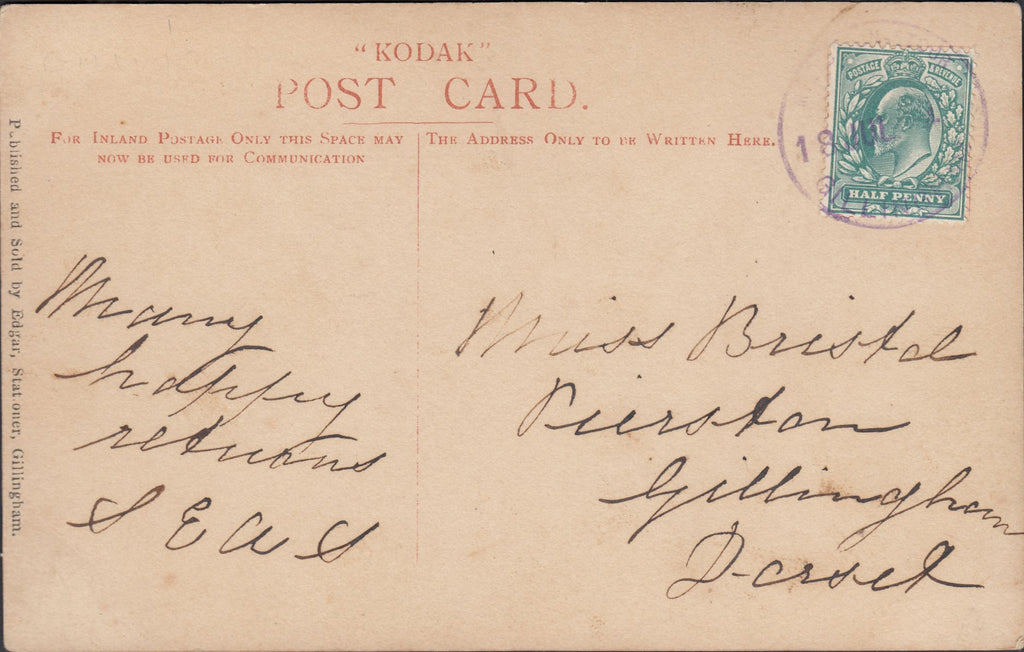 "KODAK"
POST CARD.
FOR INLAND POSTAGE ONLY THIS SPACE MAY
NOW BE USED FOR COMMUNICATION
THE ADDRESS ONLY TO BE WRITTEN HERE.
POSTAGE & REVENUE
HALF PENNY
18 JU
GILLIN
Many
happy
returns
S E A S
Miss Bristol
Pierston
Gillingham
Dorset
Published and Sold by Edgar, Stationer, Gillingham.